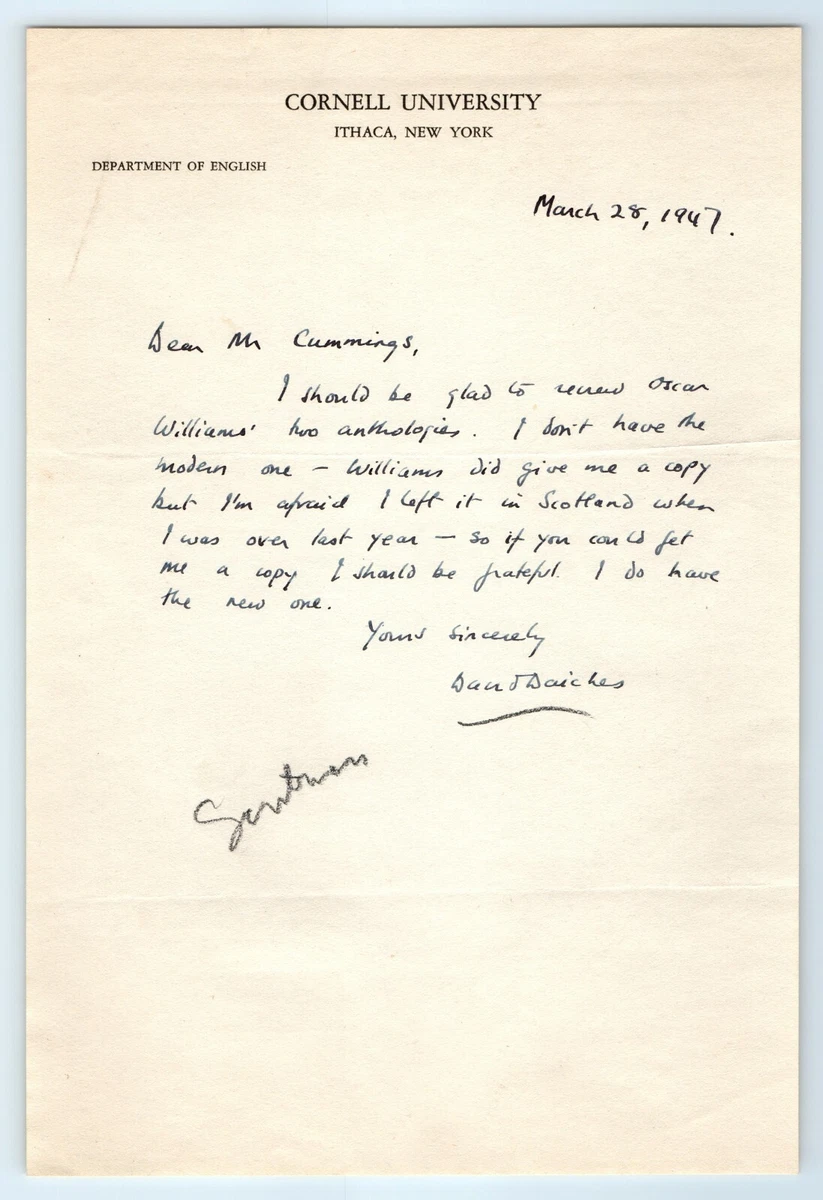 CORNELL UNIVERSITY
ITHACA, NEW YORK
DEPARTMENT OF ENGLISH
March 28, 1947.
Dear Mr Cummings,
I should be glad to review Oscar
Williams' two anthologies. I don't have the
modern one – Williams did give me a copy
but I'm afraid I left it in Scotland when
I was over last year – so if you could get
me a copy I should be grateful. I do have
the new one.
Yours sincerely
David Daiches